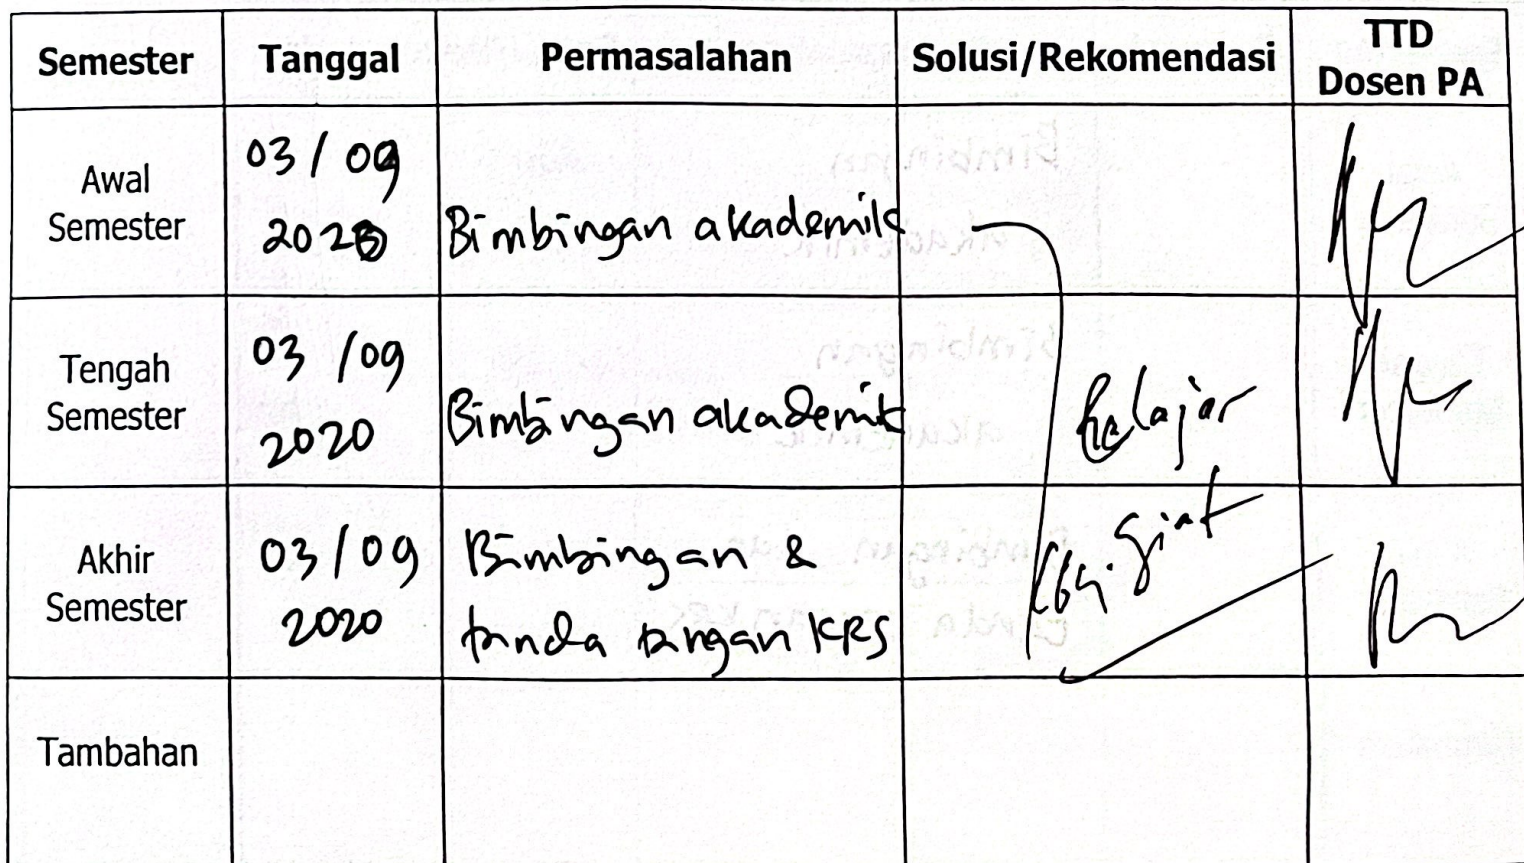 Semester Tanggal Permasalahan Solusi/Rekomendasi TTD
Dosen PA
Awal
Semester
03/09
2020
Bimbingan akademik
Tengah
Semester
03/09
2020
Bimbingan akademik
Belajar
Akhir
Semester
03/09
2020
Bimbingan &
tanda tangan KRS
lbh. giat
Tambahan